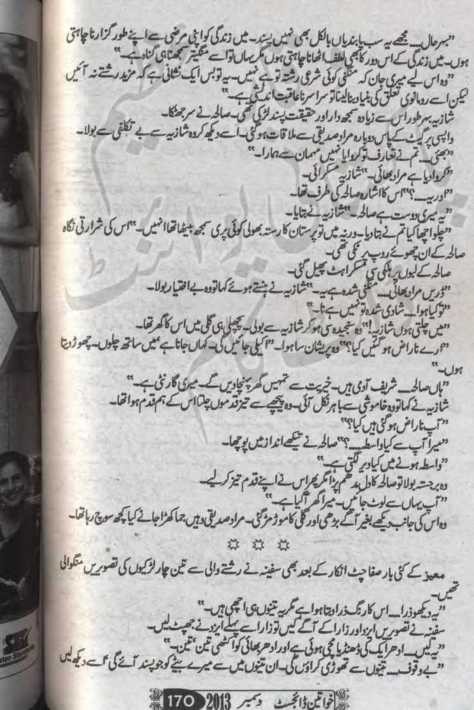 "بہرحال۔ مجھے یہ سب پابندیاں بالکل بھی نہیں پسند۔ میں زندگی کو اپنی مرضی سے اپنے طور گزارنا چاہتی
ہوں۔ میں زندگی کے اس دور کا بھی لطف اٹھانا چاہتی ہوں مگر یہاں تو اسے منگیتر سمجھنا ہی گناہ ہے۔"
"وہ اس لیے میری جان کہ منگنی کوئی شرعی رشتہ تو ہے نہیں۔ یہ تو بس ایک نشانی ہے کہ مزید رشتے نہ آئیں
لیکن اسے رومانوی تعلق کی بنیاد بنا لینا تو سراسر نا عاقبت اندیشی ہے۔"
شازیہ بہرطور اس سے زیادہ سمجھ دار اور حقیقت پسند لڑکی تھی۔ صالحہ نے سر جھٹکا۔
واپسی پر گیٹ کے پاس دوبارہ مراد صدیقی سے ملاقات ہو گئی۔ اسے دیکھ کر وہ شازیہ سے بے تکلفی سے بولا۔
"بھئی۔ تم نے تعارف تو کروایا نہیں مہمان سے ہمارا۔"
"کروا دیا ہے مراد بھائی۔" شازیہ مسکرائی۔
"اور یہ؟" اس کا اشارہ صالحہ کی طرف تھا۔
"یہ میری دوست ہے صالحہ۔" شازیہ نے بتایا۔
"چلو اچھا کیا تم نے بتا دیا۔ ورنہ میں تو پرستان کا رستہ بھولی کوئی پری سمجھ بیٹھا تھا انہیں۔" اس کی شرارتی نگاہ
صالحہ کے ان چھوئے روپ پر ٹکی تھی۔
صالحہ کے لبوں پر ہلکی سی مسکراہٹ پھیل گئی۔
"ڈریں مراد بھائی۔ منگنی شدہ ہے یہ۔" شازیہ نے ہنستے ہوئے کہا تو وہ بے اختیار بولا۔
"تو کیا ہوا۔ شادی شدہ تو نہیں ہے نا۔"
"میں چلتی ہوں شازیہ!" وہ سنجیدہ سی ہو کر شازیہ سے بولی۔ پچھلی ہی گلی میں اس کا گھر تھا۔
"ارے ناراض ہو گئیں کیا؟" وہ پریشان سا ہوا۔ "اکیلی جائیں گی۔ کہاں جانا ہے میں ساتھ چلوں۔ چھوڑ دیتا
ہوں۔"
"ہاں صالحہ۔ شریف آدمی ہیں۔ خیریت سے تمہیں گھر پہنچا دیں گے۔ میری گارنٹی ہے۔"
شازیہ نے کہا تو وہ خاموشی سے باہر نکل آئی۔ وہ پیچھے سے تیز قدموں چلتا اس کے ہم قدم ہوا تھا۔
"آپ ناراض ہو گئی ہیں کیا؟"
"میرا آپ سے کیا واسطہ؟" صالحہ نے تیکھے انداز میں پوچھا۔
"واسطہ ہونے میں کیا دیر لگتی ہے۔"
وہ برجستہ بولا تو صالحہ کا دل دھڑکا مگر پھر اس نے اپنے قدم تیز کر لیے۔
"آپ یہاں سے لوٹ جائیں۔ میرا گھر آ گیا ہے۔"
وہ اس کی جانب دیکھے بغیر آگے بڑھی اور گلی کا موڑ مڑ گئی۔ مراد صدیقی وہیں جما کھڑا جانے کیا کچھ سوچ رہا تھا۔
معیز کے کئی بار صفاچٹ انکار کے بعد بھی سفینہ نے رشتے والی سے تین چار لڑکیوں کی تصویریں منگوالی
تھیں۔
"یہ دیکھو ذرا۔ اس کا رنگ ذرا دبتا ہوا ہے مگر یہ تینوں ہی اچھی ہیں۔"
سفینہ نے تصویریں ایزد اور زارا کے آگے کیں تو زارا سے پہلے ایزد نے جھپٹ لیں۔
"یہ لیں۔ ادھر ایک کی ڈھنڈیا مچی ہوئی ہے اور ادھر بھائی کو اکٹھی تین تین۔"
"بے وقوف۔ تینوں سے تھوڑی کراؤں گی۔ ان تینوں میں سے میرے بیٹے کو جو پسند آئے گی اسے دیکھ لیں
خواتین ڈائجسٹ دسمبر 2013 170